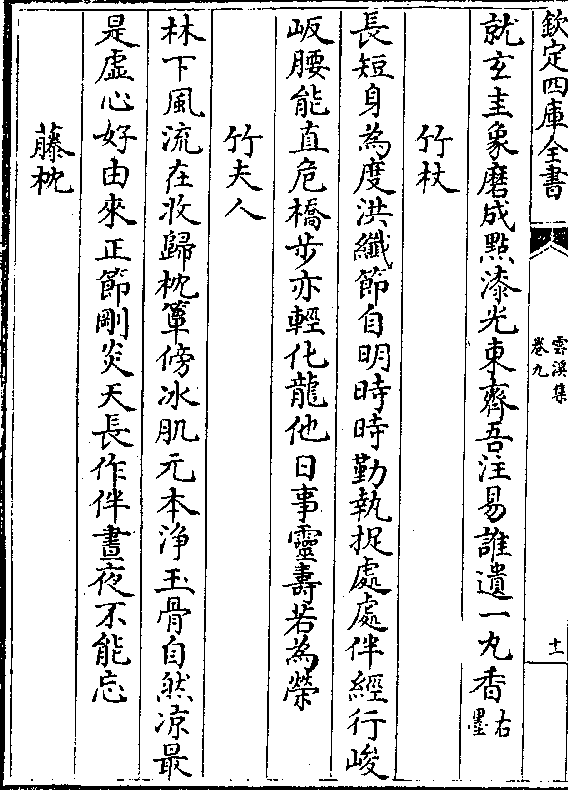 欽定四庫全書
雲溪集
卷九
十一
就玄圭象磨成點漆光東齋吾注易誰遺一丸香右墨
竹杖
長短身為度洪纖節自明時時勤執捉處處伴經行峻
岅腰能直危橋步亦輕化龍他日事靈壽若為榮
竹夫人
林下風流在收歸枕簟傍冰肌元本浄玉骨自然凉最
是虛心好由來正節剛炎天長作伴晝夜不能忘
藤枕